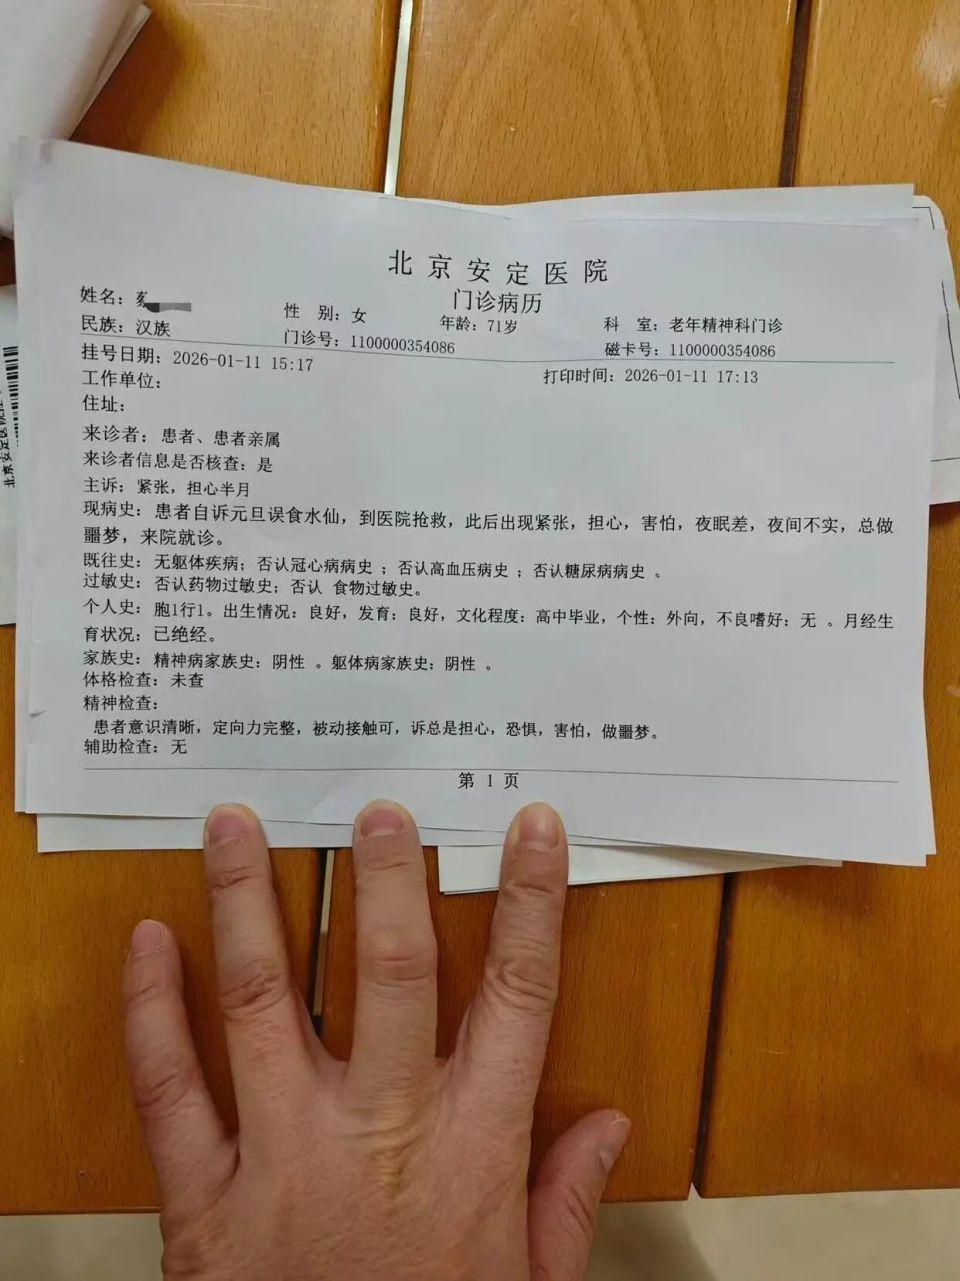 北京安定医院
门诊病历
姓名：
性 别：女
年龄：71岁
科 室：老年精神科门诊
民族：汉族
门诊号：1100000354086
磁卡号：1100000354086
挂号日期：2026-01-11 15:17
打印时间：2026-01-11 17:13
工作单位：
住址：
来诊者：患者、患者亲属
来诊者信息是否核查：是
主诉：紧张，担心半月
现病史：患者自诉元旦误食水仙，到医院抢救，此后出现紧张，担心，害怕，夜眠差，夜间不实，总做
噩梦，来院就诊。
既往史：无躯体疾病；否认冠心病病史 ；否认高血压病史 ；否认糖尿病病史 。
过敏史：否认药物过敏史；否认 食物过敏史。
个人史：胞1行1。出生情况：良好，发育：良好，文化程度：高中毕业，个性：外向，不良嗜好：无 。月经生
育状况：已绝经。
家族史：精神病家族史：阴性 。躯体病家族史：阴性 。
体格检查：未查
精神检查：
患者意识清晰，定向力完整，被动接触可，诉总是担心，恐惧，害怕，做噩梦。
辅助检查：无
第 1 页